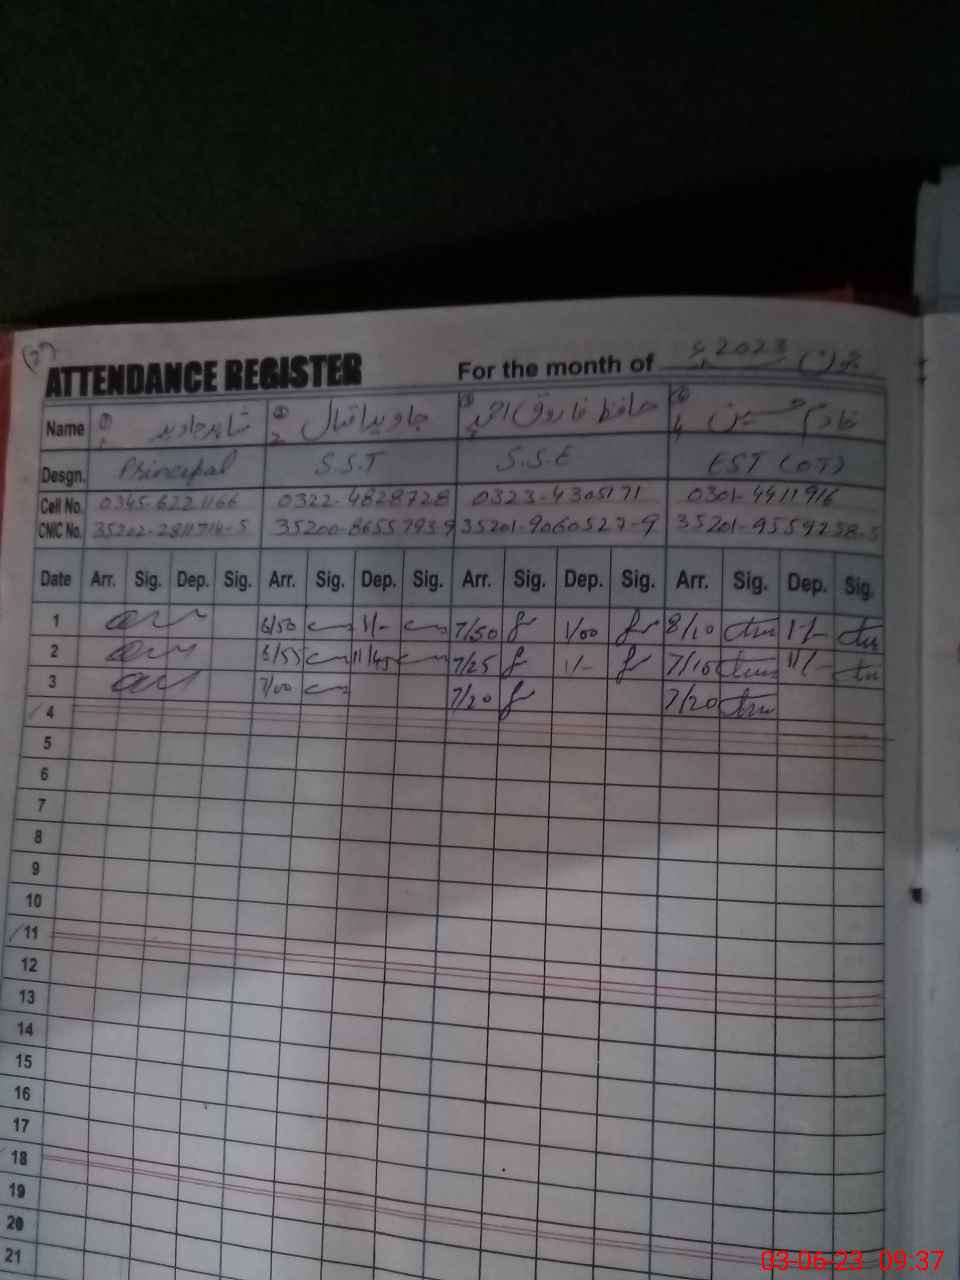 ATTENDANCE REGISTER For the month of جون 2023ء
Name ① شاہد جاوید ② جاوید اقبال ③ حافظ فاروق احمد ④ خادم حسین
Desgn. Principal S.S.T S.S.E EST (OT)
Cell No. 0345-6221166 0322-4828728 0323-4305171 0301-4411916
CNIC No. 35202-2811714-5 35200-8655793-9 35201-9060527-9 35201-9559258-5
Date Arr. Sig. Dep. Sig. Arr. Sig. Dep. Sig. Arr. Sig. Dep. Sig. Arr. Sig. Dep. Sig.
1 6/50 1/- 7/50 1/00 8/10 1/-
2 6/55 11/45 7/25 1/- 7/10 11/-
3 7/00 7/20 7/20
4
5
6
7
8
9
10
11
12
13
14
15
16
17
18
19
20
21
03-06-23 09:37